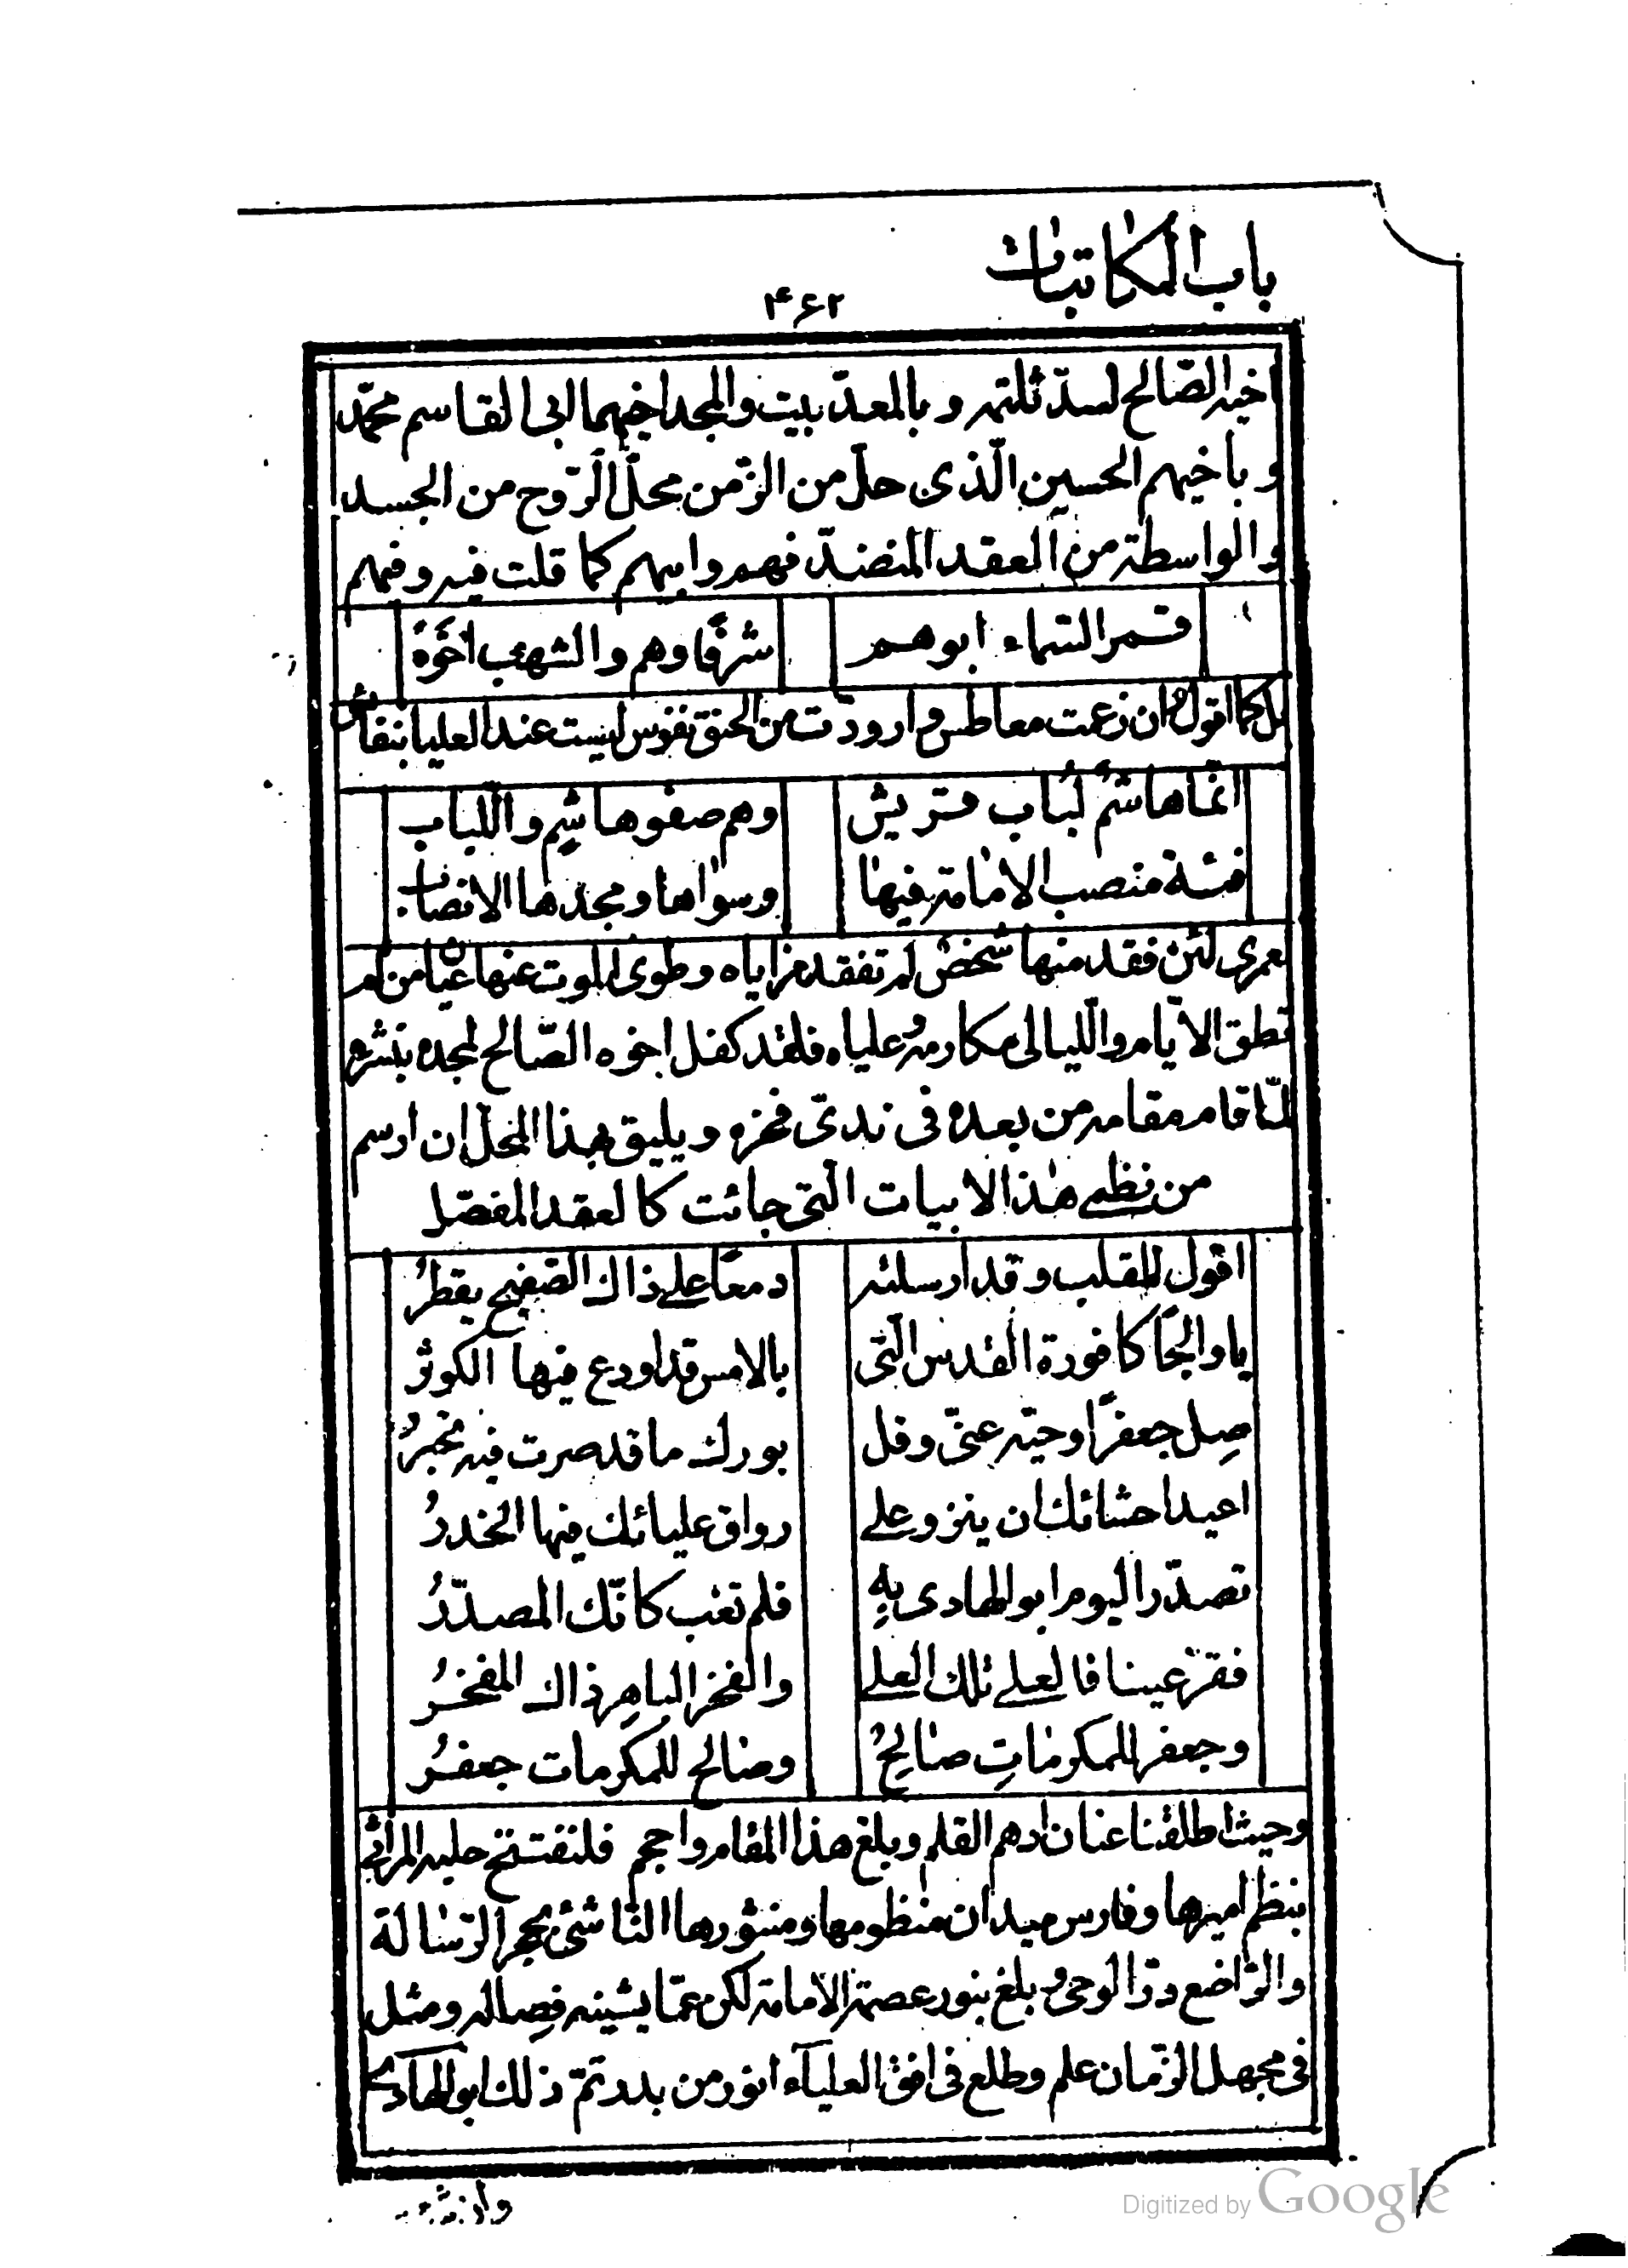 باب المکاتبات
۴۶۲
اخیه الصّالح لسدّ ثلمته و بالمعدّ بیت والمجد اخیهما ابی القاسم محمّد
و باخیهم الحسین الّذی حلّ من الزّمن محلّ الرّوح من الجسد
والواسطة من العقد المنضد فهم وابیهم کما قلت فیه وفیهم
قمر السّماء ابوهم شرفًا وهم والشهب اخوة
بل کما اقول وان رغمت معاطس وارودّت من الحنق نفوس لیست عند العلیا بنفائس
انّما هاشمٌ لُباب قریش وهم صفو هاشمٍ واللّباب
فئة منصب الامامة فیها وسواها ومجدها الانصاب
لعمری لئن فقد منها شخصٌ لم تفقد مزایاه وطوی الموت عنها عیان من لم
تطق الایّام واللّیالی مکارمه وعلیاه فلقد کفل اخوه الصّالح لمجده بنشره
لمّا قام مقامه من بعده فی ندیّ فخره ویلیق بهذا المحلّ ان ارسم
من نظمی هٰذا الابیات الّتی جائت کالعقد المفصّل
اقول للقلب وقد ارسلته دمعًا علی ذاك الصّفیح یقطرُ
یا والجًا کافورة القدس الّتی بالامس قد اودع فیها الکوثر
صِل جعفرًا وحیّه عنّی وقل بورك ما قد صرت فیه تحبرُ
اعید احشائك ان ینزو علی رواق علیائك فیها الخدرُ
تصدّر الیوم ابو الهادی بِهِ فلم تغب کانّك المصدّرُ
فقرّ عینا فالعلی تلك العلی والفخر الباهِر ذاك المفخرُ
وجعفر للمکرمٰاتِ صٰالِحٌ وصٰالح للمکرمات جعفرُ
وحیث اطلقنا عنان ادهم القلم وبلغ هذا المقام واحجم فلنفتتح حلبة المراثی
بنظم امیرها وفارس میدان منظومها ومنثورها النّاشئ بحجر الرّسٰالة
والرّاضع درّ الوحی وبلغ بنور عصمة الامامة لکن عمّا یشینه فِصاله ومثل
فی مجهل الزّمان علم وطلع فی افق العلیآء انور من بدر تمّ ذلك ابو الهادی
Digitized by Google